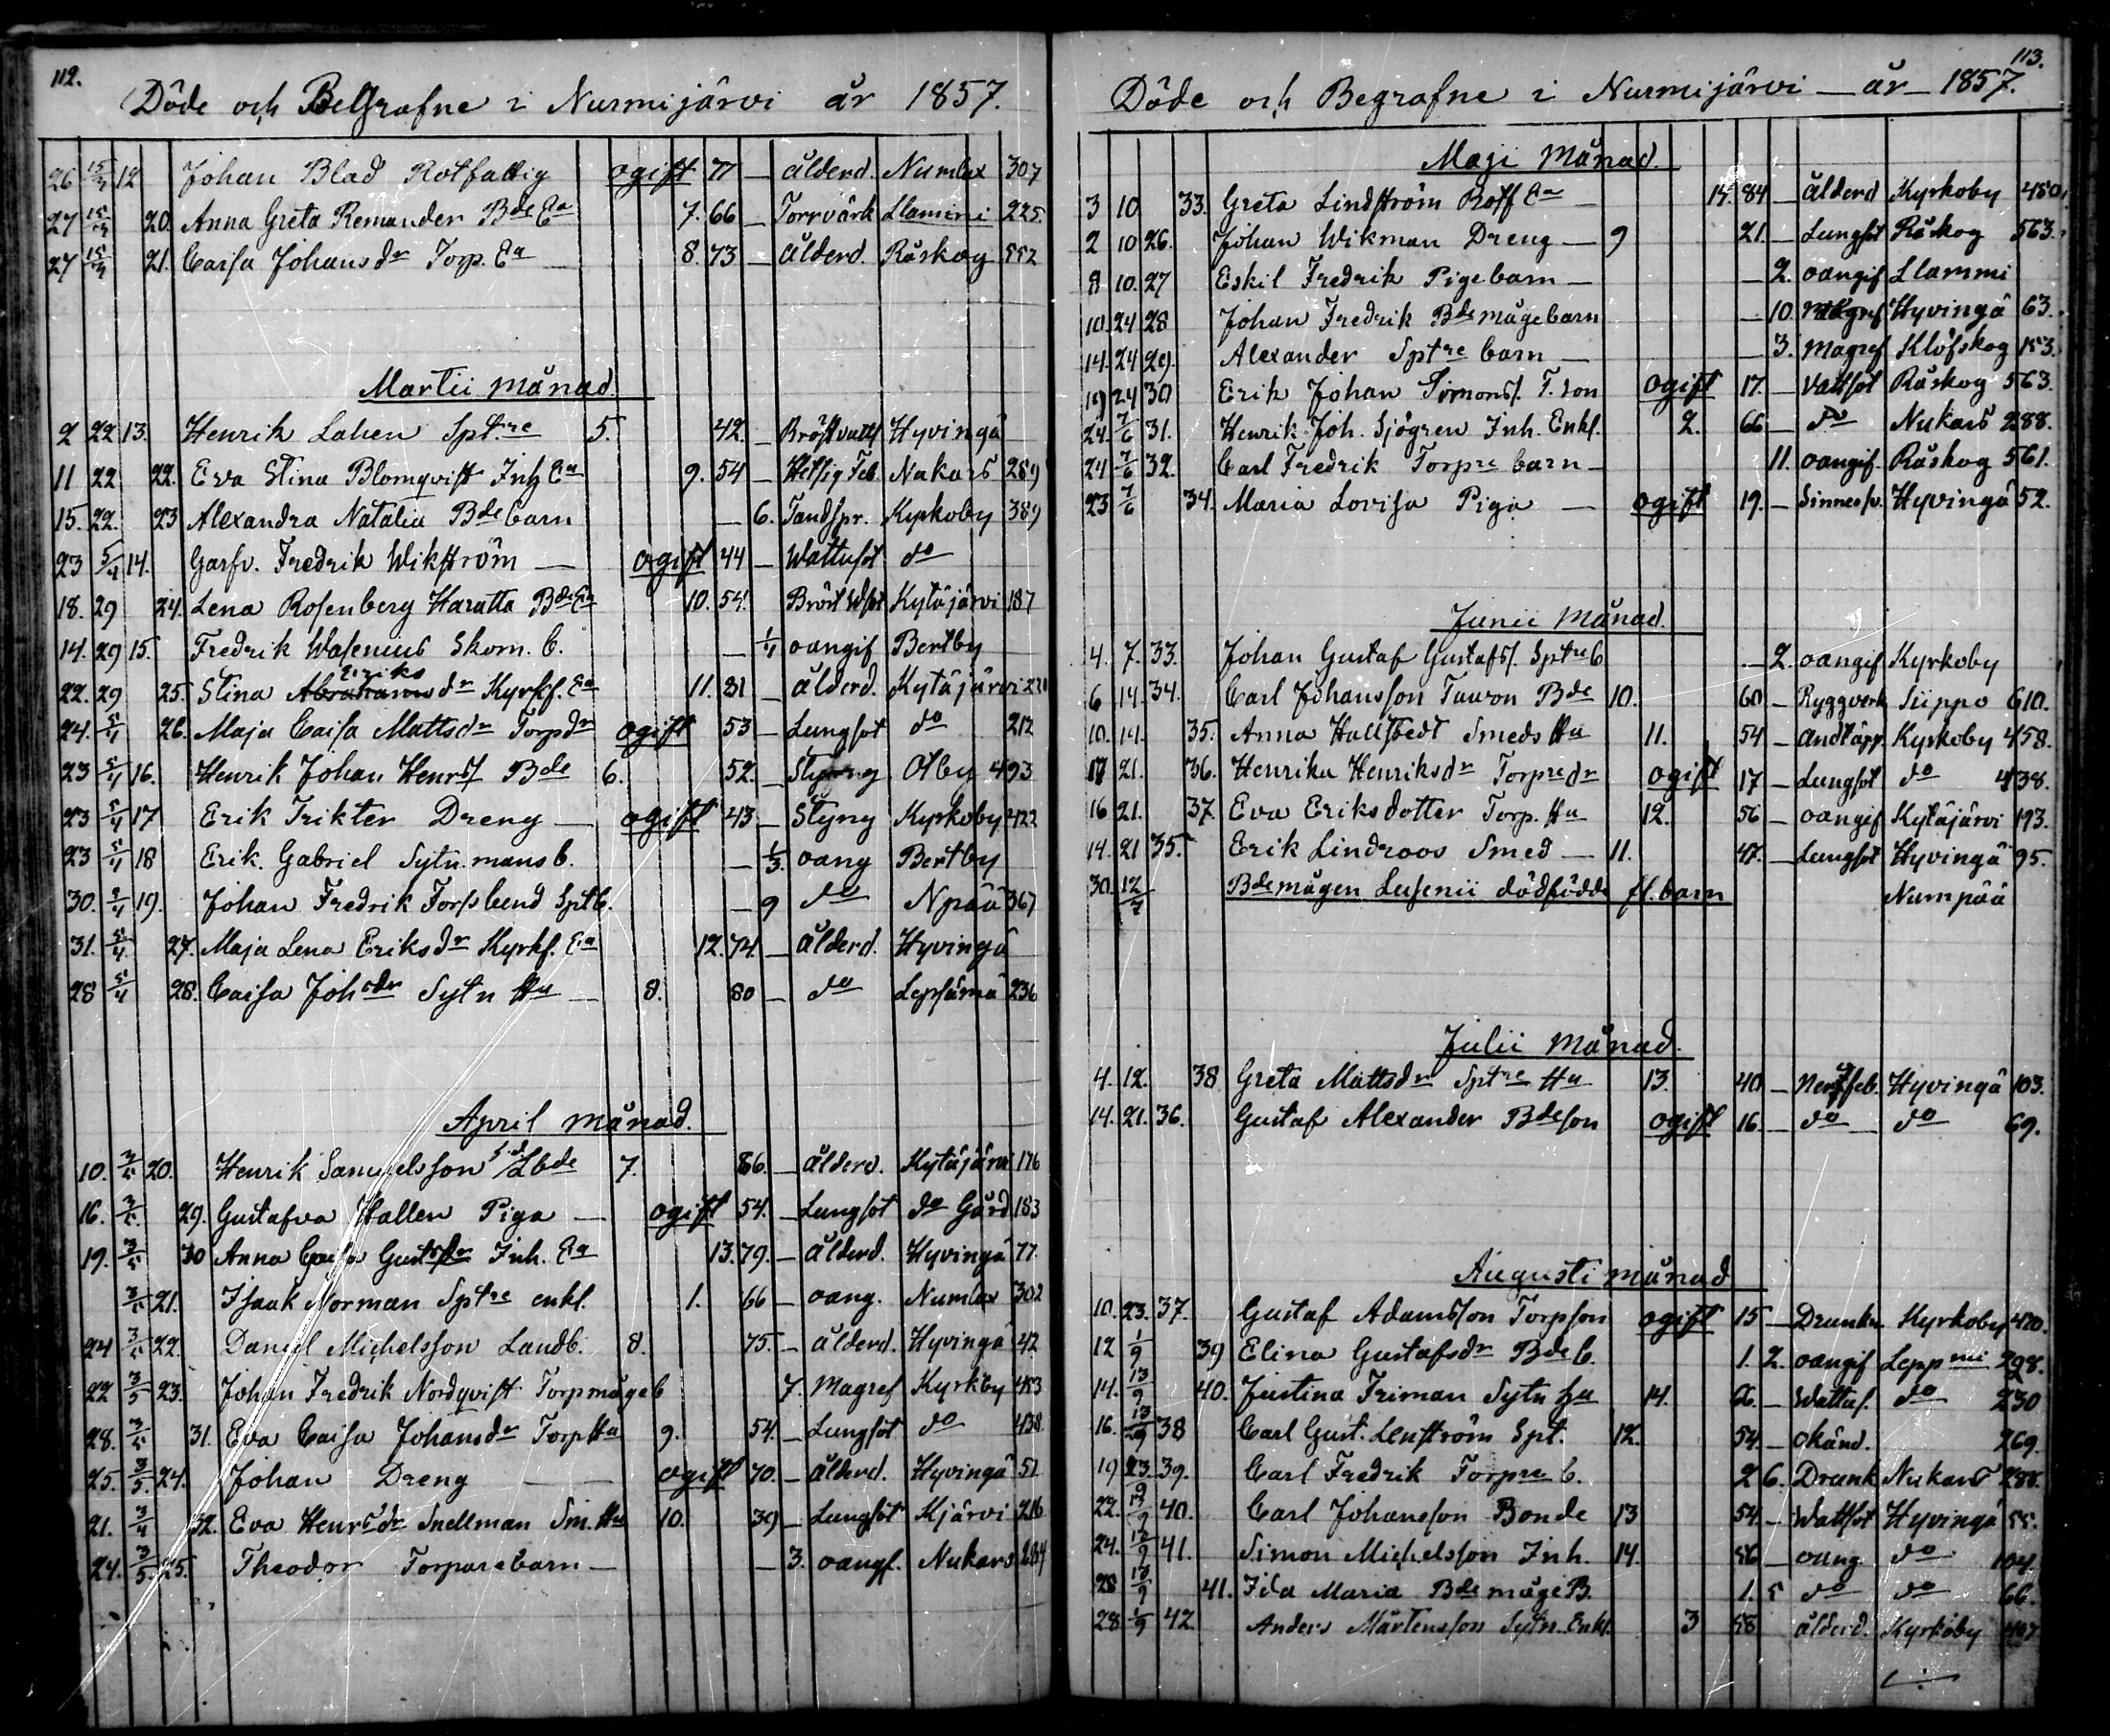 112.
Döde och Begrafne i Nurmijärvi år 1857.
26 15/3 12 Johan Blad Rotfattig ogift 77 — ålderd. Numlax 307
27 15/3 20. Anna Greta Remander Bde Ea 7. 66 — Torrvärk Llammi 225.
27 15/3 21. Caisa Johansdr Torp. Ea — 8. 73 — ålderd. Råskog 552
Martii månad
2 22 13. Henrik Lahen Sptre 5. 42. — Bröstvatts Hyvingä
11 22 22. Eva Stina Blomqvist Inh Ea 9. 54 — Hetsig Feb. Nukars 269
15. 22. 23 Alexandra Natalia Bde barn — 6. Tandspr. Kyrkoby 389
23 5/4 14. Garfv. Fredrik Wikström — ogift 44 — Wattusot do
18. 29 24. Lena Rosenberg Haratta Bde Ea 10. 54. Bröst Wsot Kytäjärvi 187
14. 29 15. Fredrik Wasenius Skom. b. — 1/4 oangif Bertby
22. 29 25. Stina Eriks dr Kyrkf. Ea 11. 81 — ålderd. Kytäjärvi
24. 5/4 26. Maja Caisa Mattsdr Torpdr ogift 53 — Lungsot do 212
23 5/4 16. Henrik Johan Henrs/ Bde 6. 52. — Styng Olby 493
23 5/4 17 Erik Trikter Dreng — ogift 43 — Styng Kyrkoby 422
23 5/4 18 Erik Gabriel Sytn.mans b. — 1/3. oang Bertby
30. 5/4 19. Johan Fredrik Forsbend Sptb. — 9 do Npää 367
31. 5/4. 27. Maja Lena Eriksdr Kyrkf. Ea 12. 74. — ålderd. Hyvingä
28 5/4 28. Caisa Johsdr Sytn Hu — 8. 80 — do Lepsämä 236
April månad.
10. 3/5 20. Henrik Samuelsson Lbde 7. 86. — ålderd. Kytäjärvi 176
16. 3/5. 29. Gustafva Hallen Piga — ogift 54. — Lungsot do Gård 183
19. 3/5 30 Anna Caisa Gustsdr Inh. Ea 13. 79. — ålderd. Hyvingä 77
3/5 21. Isaak Norman Sptre enkl. 1. 66 — oang. Numlax 302
24 3/5 22. Daniel Michelsson Landb. 8. 75. — ålderd. Hyvingä 42
22 3/5 23. Johan Fredrik Nordqvist Torpmåge b 7. Magref Kyrkby 453
28. 3/5 31. Eva Caisa Johansdr Torp Hu 9. 54. — Lungsot do 438
25. 3/5. 24. Johan Dreng — ogift 70. — ålderd. Hyvingä 51
21. 3/4 32. Eva Henrsdr Snellman Sm. Hu 10. 39 — Lungsot Kjärvi 216
24. 3/5. 25. Theodor Torparebarn — — 3. oangf. Nukars 284
113.
Döde och Begrafne i Nurmijärvi — år — 1857.
Maji månad.
3 10 33. Greta Lindström Rotf Ea — 14. 84 — ålderd Kyrkoby 450.
2 10 26. Johan Wikman Dreng — 9 21. — Lungsot Råskog 563.
8 10. 27 Eskil Fredrik Pigebarn — — 2. oangif Llammi
10. 24 28 Johan Fredrik Bdemågebarn — 10. Magref Hyvingä 63.
14. 24 29. Alexander Sptre barn — — 3. Magref Klöfskog 153.
19 24 30 Erik Johan Simons/. T. son ogift 17. — Vattsot Råskog 563.
24. 7/6 31. Henrik Joh. Sjögren Inh. Enkl. 2. 66 — do Nukars 288.
24 7/6 32. Carl Fredrik Torpre barn — 11. oangif. Råskog 561.
23 7/6 34. Maria Lovisa Piga — ogift 19. — Sinnessv. Hyvingä 52.
Junii månad.
4. 7. 33. Johan Gustaf Gustafs/. Sptre b — 2. oangif Kyrkoby
6 14. 34. Carl Johansson Tawon Bde 10. 60 — Ryggverk Siippo 610.
10. 14. 35. Anna Hallstedt Smeds Hu 11. 54 — andtäpp. Kyrkoby 458.
17 21. 36. Henrika Henriksdr Torpredr ogift 17 — Lungsot do 438.
16 21. 37. Eva Eriksdotter Torp. Hu 12. 56 — oangif Kytäjärvi 193.
14. 21 35. Erik Lindroos Smed — 11. 47. — Lungsot Hyvingä 95.
30. 12/7 Bdemågen Lusenii dödfödde fl. barn Numpää
Julii månad.
4. 12. 38 Greta Mattsdr Sptre Hu 13. 40 — Nervfeb. Hyvingä 103.
14. 21. 36. Gustaf Alexander Bdeson ogift 16. — do do 69.
Augusti månad
10. 23. 37. Gustaf Adamsson Torpson ogift 15 — Drunkn. Kyrkoby 470.
12 1/9 39 Elina Gustafsdr Bde b. 1. 2. oangif Leppmi 298.
14. 13/9 40. Justina Friman Sytn hu 14. 66. — Wattus. do 230
16. 13/9 38 Carl Gust. Lenström Spt. 12. 54. — okänd. 269
19 23. 39. Carl Fredrik Torpre b. 2 6. Drunk Nukars 288.
22. 13/9 40. Carl Johansson Bonde 13 54. — Wattsot Hyvingä 55.
24. 13/9 41. Simon Michelsson Inh. 14. 56 — oang. do 104.
28 13/9 41. Ida Maria Bde måge B. 1. 5 do do 66.
28 1/9 42. Anders Mårtensson Sytn. Enkl. 3 58 ålderd. Kyrkoby